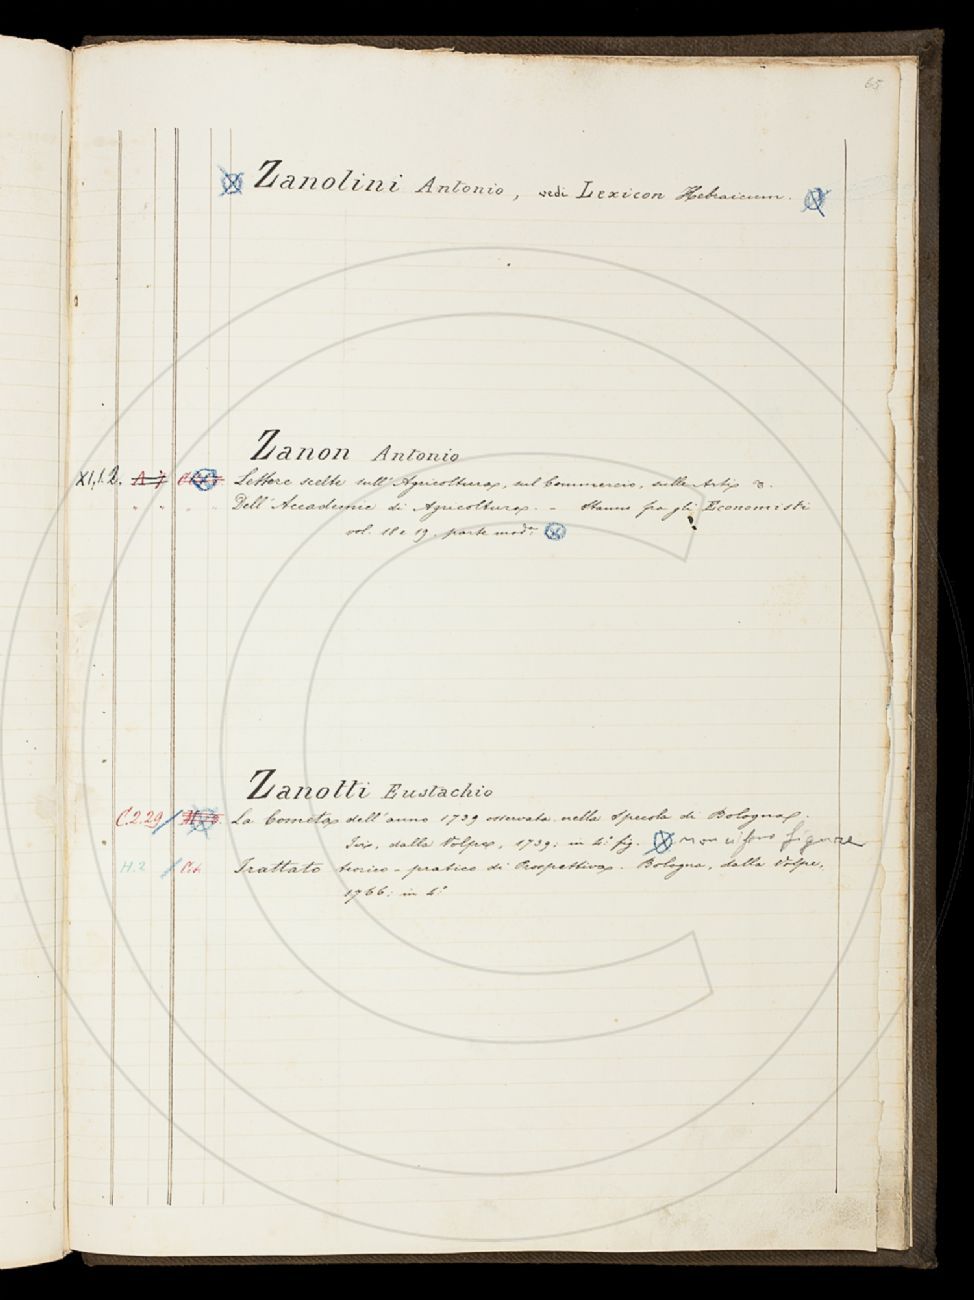 65
Zanolini Antonio, vedi Lexicon Hebraicum.
Zanon Antonio
XI.1.2. Lettere scelte sull'Agricoltura, sul Commercio, sulle Arti &.
" " " " Dell'Accademie di Agricoltura. - Stanno fra gli Economisti
vol. 18 e 19, parte mod.ª
Zanotti Eustachio
C.2.29 La Cometa dell'anno 1739 osservata nella specola di Bologna.
Ivi, dalla Volpe, 1739; in 4.º fig. non vi sono figure
H.2 Trattato teorico-pratico di Prospettiva. Bologna, dalla Volpe,
1766; in 4.º